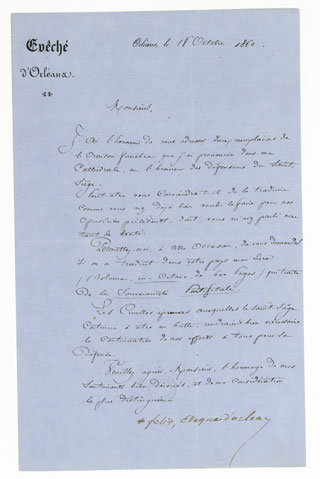 Evêché
d'Orléans.
Orléans, le 18 Octobre 1860
Monsieur,
J'ai l'honneur de vous adresser deux exemplaires de
l'Oraison funèbre que j'ai prononcée dans ma
Cathédrale, en l'honneur des défenseurs du Saint
Siége.
Peut être vous Conviendra-t-il de la traduire
comme vous avez déjà bien voulu le faire pour nos
opuscules précédents, dont vous m'avez parlé avec
tant de bonté.
Permettez-moi, à cette Occasion, de vous demander
si on a traduit dans votre pays mon Livre
(1 Volume, in-Octavo, de Pages) qui traite
de la Souveraineté Pontificale.
Les Cruelles épreuves auxquelles le Saint Siége
Continue à être en butte, rendraient bien nécessaire
la Continuation de nos efforts à tous pour sa
défense.
Veuillez agréer, Monsieur, l'hommage de mes
Sentiments bien dévoués, et de ma Considération
la plus distinguée.
+ felix, évêque d'orléans